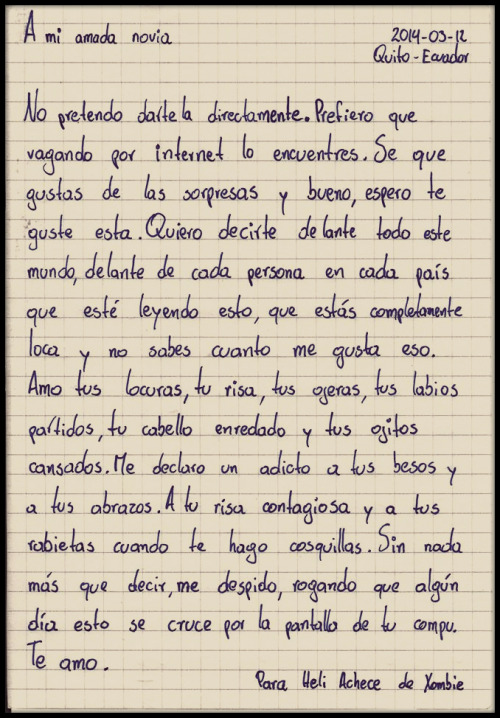 A mi amada novia
2014-03-12
Quito-Ecuador
No pretendo dartela directamente. Prefiero que
vagando por internet lo encuentres. Se que
gustas de las sorpresas y bueno, espero te
guste esta. Quiero decirte delante todo este
mundo, delante de cada persona en cada país
que esté leyendo esto, que estás completamente
loca y no sabes cuanto me gusta eso.
Amo tus locuras, tu risa, tus ojeras, tus labios
partidos, tu cabello enredado y tus ojitos
cansados. Me declaro un adicto a tus besos y
a tus abrazos. A tu risa contagiosa y a tus
rabietas cuando te hago cosquillas. Sin nada
más que decir, me despido, rogando que algún
día esto se cruce por la pantalla de tu compu.
Te amo.
Para Heli Achece de Xombie